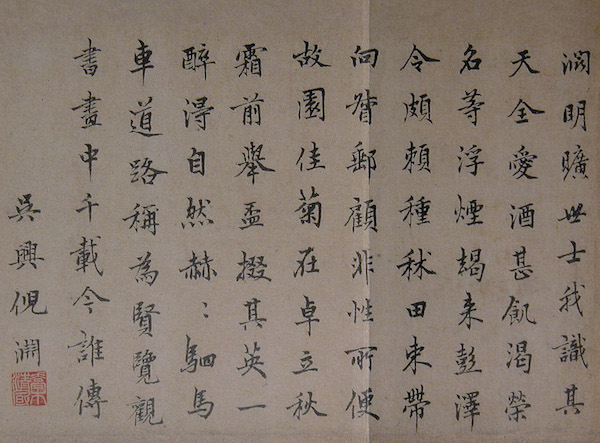 渊明曠世士我識其
天全愛酒甚飢渴榮
名等浮煙朅来彭澤
令頗頼種秫田束帶
向督郵顧非性所便
故園佳菊在卓立秋
霜前舉盃掇其英一
醉得自然赫〻駟馬
車道路稱為賢覽觀
書畫中千載今誰傳
吳興倪渊